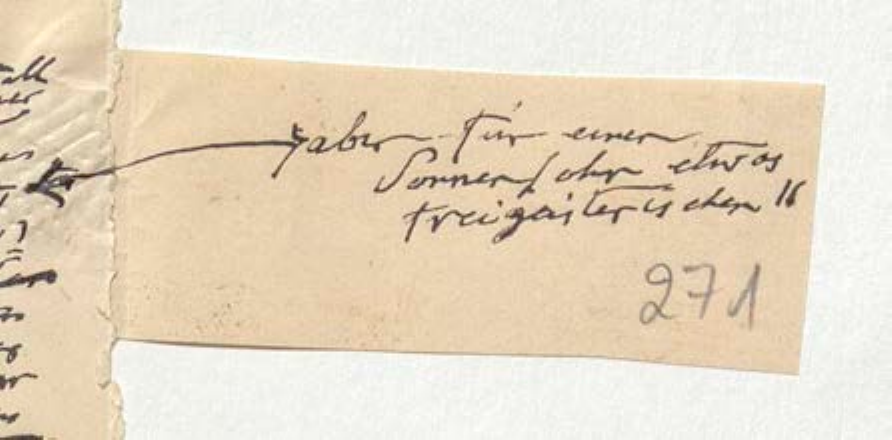 aber für einen
Sonnensohn etwas
freigeisterischen"
271